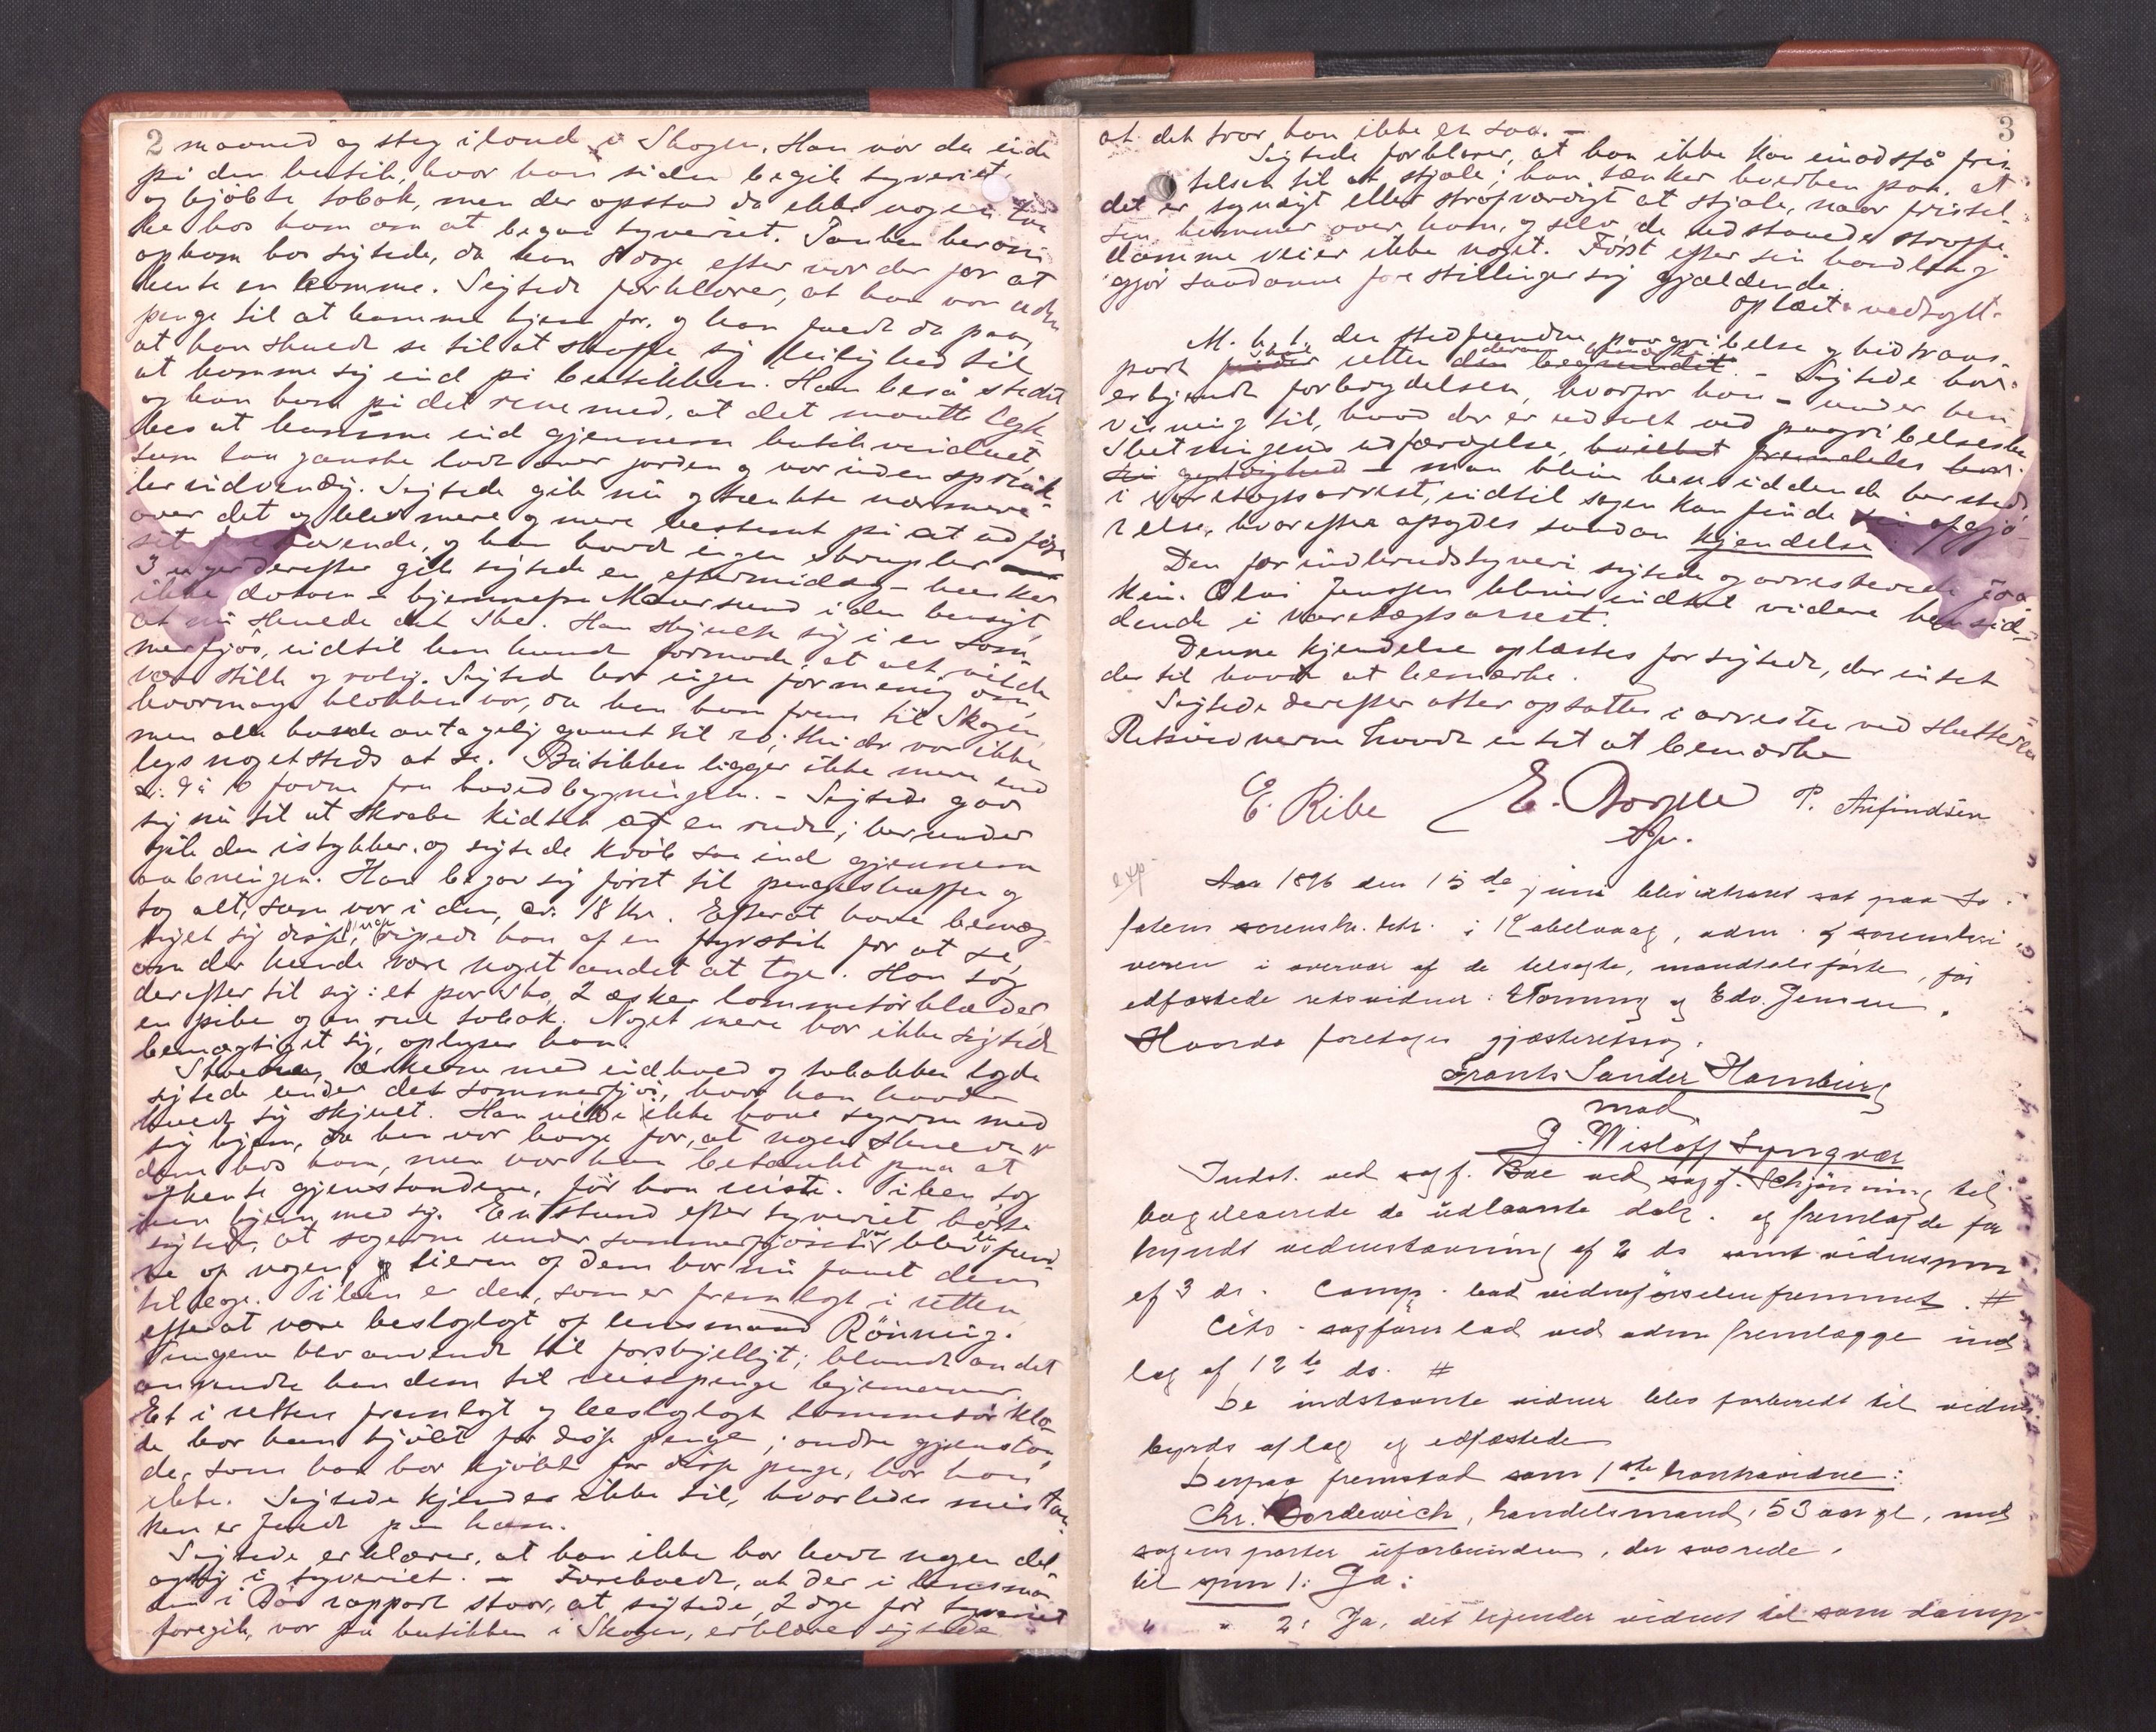 2 maaned og steg iland i Skogen. Han var da inde
på den butik, hvor han siden begik tyveriet,
og kjøbte tobak, men der opstod da ikke nogen tan
ke hos ham om at begaa tyveriet. Tanken herom
opkom hos sigtede, da han dage efter var der for at
hente en komme. Sigtede forklarer, at han var uden
penge til at komme hjem for, og han fandt da paa,
at han skulde se til at skaffe sig leilighed til
at komme sig ind på butikken. Han beså stedet
og han kom på det rene med, at det maatte lyk-
kes at komme ind gjennem butikvinduet,
som laa ganske lavt over jorden og var uden sprink-
ler indvendig. Sigtede gik nu og tænkte nærmere
over det og blev mere og mere bestemt på at udføre
sit forehavende, og han havde ingen skrupler
3 uger derefter gik sigtede en eftermiddag – husker
ikke datoen – hjemmefra Maursund i den hensigt,
at nu skulde det ske. Han skjulte sig i en som-
merfjøs, indtil han kunde formode, at alt vilde
være stille og rolig. Sigtede har ingen formening om,
hvormange klokken var, da han kom frem til Skogen,
men alle havde antagelig gaaet til ro; thi der var ikke
lys nogetsteds at se. Butikken ligger ikke mere end
ca. 9 à 10 favne fra hovedbygningen. – Sigtede gav
sig nu til at skrabe kidtet af en rude; herunder
gik den istykker, og sigtede krøb saa ind gjennem
aabningen. Han begav sig først til pengeskuffen og
tog alt, som var i den, ca. 18 Kr. Efterat have bemæg-
tiget sig disse penge, ripede han af en fyrstik for at se,
om der kunde være noget andet at tage. Han tog
derefter til sig: et par sko, 2 æsker lommetørklæder,
en pibe og en rul tobak. Noget mere har ikke sigtede
bemægtiget sig, oplyser han.
Skoene, æskerne med indhold og tobakken lagde
sigtede under det sommerfjøs, hvor han havde
holdt sig skjult. Han vilde ikke have sagerne med
sig hjem, da han var bange for, at nogen skulde se
dem hos ham, men var han betænkt paa at
afhente gjenstandene, før han reiste. Piben tog
han hjem med sig. En stund efter tyveriet hørte
sigtede, at sagerne under sommerfjøset var blevet fun-
ne af nogen, og eieren af dem har nu faaet dem
tilbage. Piben er den, som er fremlagt i retten
efterat være beslaglagt af lensmand Rönning.
Pengene blev anvendt til forskjelligt; blandt andet
anvendte han dem til reisepenge hjemover.
Et i retten fremlagt og beslaglagt lommetørklæ-
de har han kjøbt for disse penge; andre gjenstan-
de, som han har kjøbt for disse penge, har han
ikke. Sigtede kjender ikke til, hvorledes mistan-
ken er faldt paa ham.
Sigtede erklærer, at han ikke har havt nogen del-
agtig i tyveriet. – Foreholdt, at der i lensman-
den i Bös rapport staar, at sigtede, 2 dage før tyveriet
foregik, var på butikken i Skogen, erklærer sigtede
3
at det tror han ikke er saa. –
Sigtede forklarer, at han ikke kan imodstå fris-
telsen til at stjæle; han tænker hverken paa, at
det er syndigt eller strafværdigt at stjæle, naar fristel-
sen kommer over ham, og selv de udstaaede straffe-
domme veier ikke noget. Først efter sin handling
gjør saadanne forestillinger sig gjældende.
Oplæst – vedtaget.
M. h. t. den stedfundne paagribelse og hidtrans-
port finder retten den begrundet. – Sigtede har
erkjendt forbrydelsen, hvorfor han – under hen-
visning til, hvad der er udtalt ved paagribelsesbe-
slutningens udfærdigelse, hvilket fremdeles har
sin gyldighed – maa blive hensiddende her stedet
i varetægtsarrest, indtil sagen kan finde sin afgjø-
relse, hvorefter afsagdes saadan kjendelse.
Den for indbrudstyveri sigtede og arresterede Joa-
kim Olai Jenssen bliver indtil videre hensid-
dende i varetægtsarrest.
Denne kjendelse oplæstes for sigtede, der intet
der til havde at bemærke.
Sigtede derefter atter opsattes i arresten ved slutteren
Retsvidnerne havde intet at bemærke
E. Ribe E. Dorple P. Arfindsen
Aar 1896 den 15de juni blev extraret sat paa Lo-
fotens sorenskr. ktr. i Kabelvaag, adm. af sorenskri-
veren i overvær af de tilsagte, mandtalsførte, før
edfæstede retsvidner: Torning og Edv. Jensen.
Hvorda foretages gjæsteretssag.
Frants Sander Hamburg
mod
J. Wisløff Lyngvær
Indst. ved sagf. Boe ved sagf. Schjönning til-
bageleverede de udlaante dok. og fremlagde for
kyndt vidnestævning af 2 ds samt vidnespm
af 3 ds. Comp. bad vidneførselen fremmet. #
Cits. sagfører lod ved adm fremlægge ind
læg af 12te ds. #
De indstævnte vidner blev forberedt til vidnes
byrds aflæg og edfæstede
Derpaa fremstod som 1ste hovedvidne:
Chr. Bordewich, handelsmand, 53 aar gl, med
sagens parter uforbunden, der svarede,
til spm 1: Ja:
" " 2: Ja, det kjender vidnet til som damp-